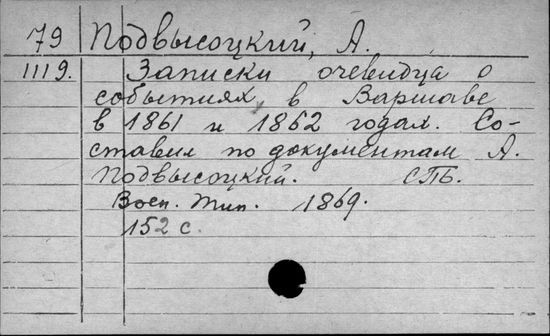 79 Подвысоцкий, А.
1119. Записки очевидца о
событиях в Варшаве
в 1861 и 1862 годах. Со-
ставил по документам А.
Подвысоцкий. СПБ.
Воен. Тип. 1869.
152 с.